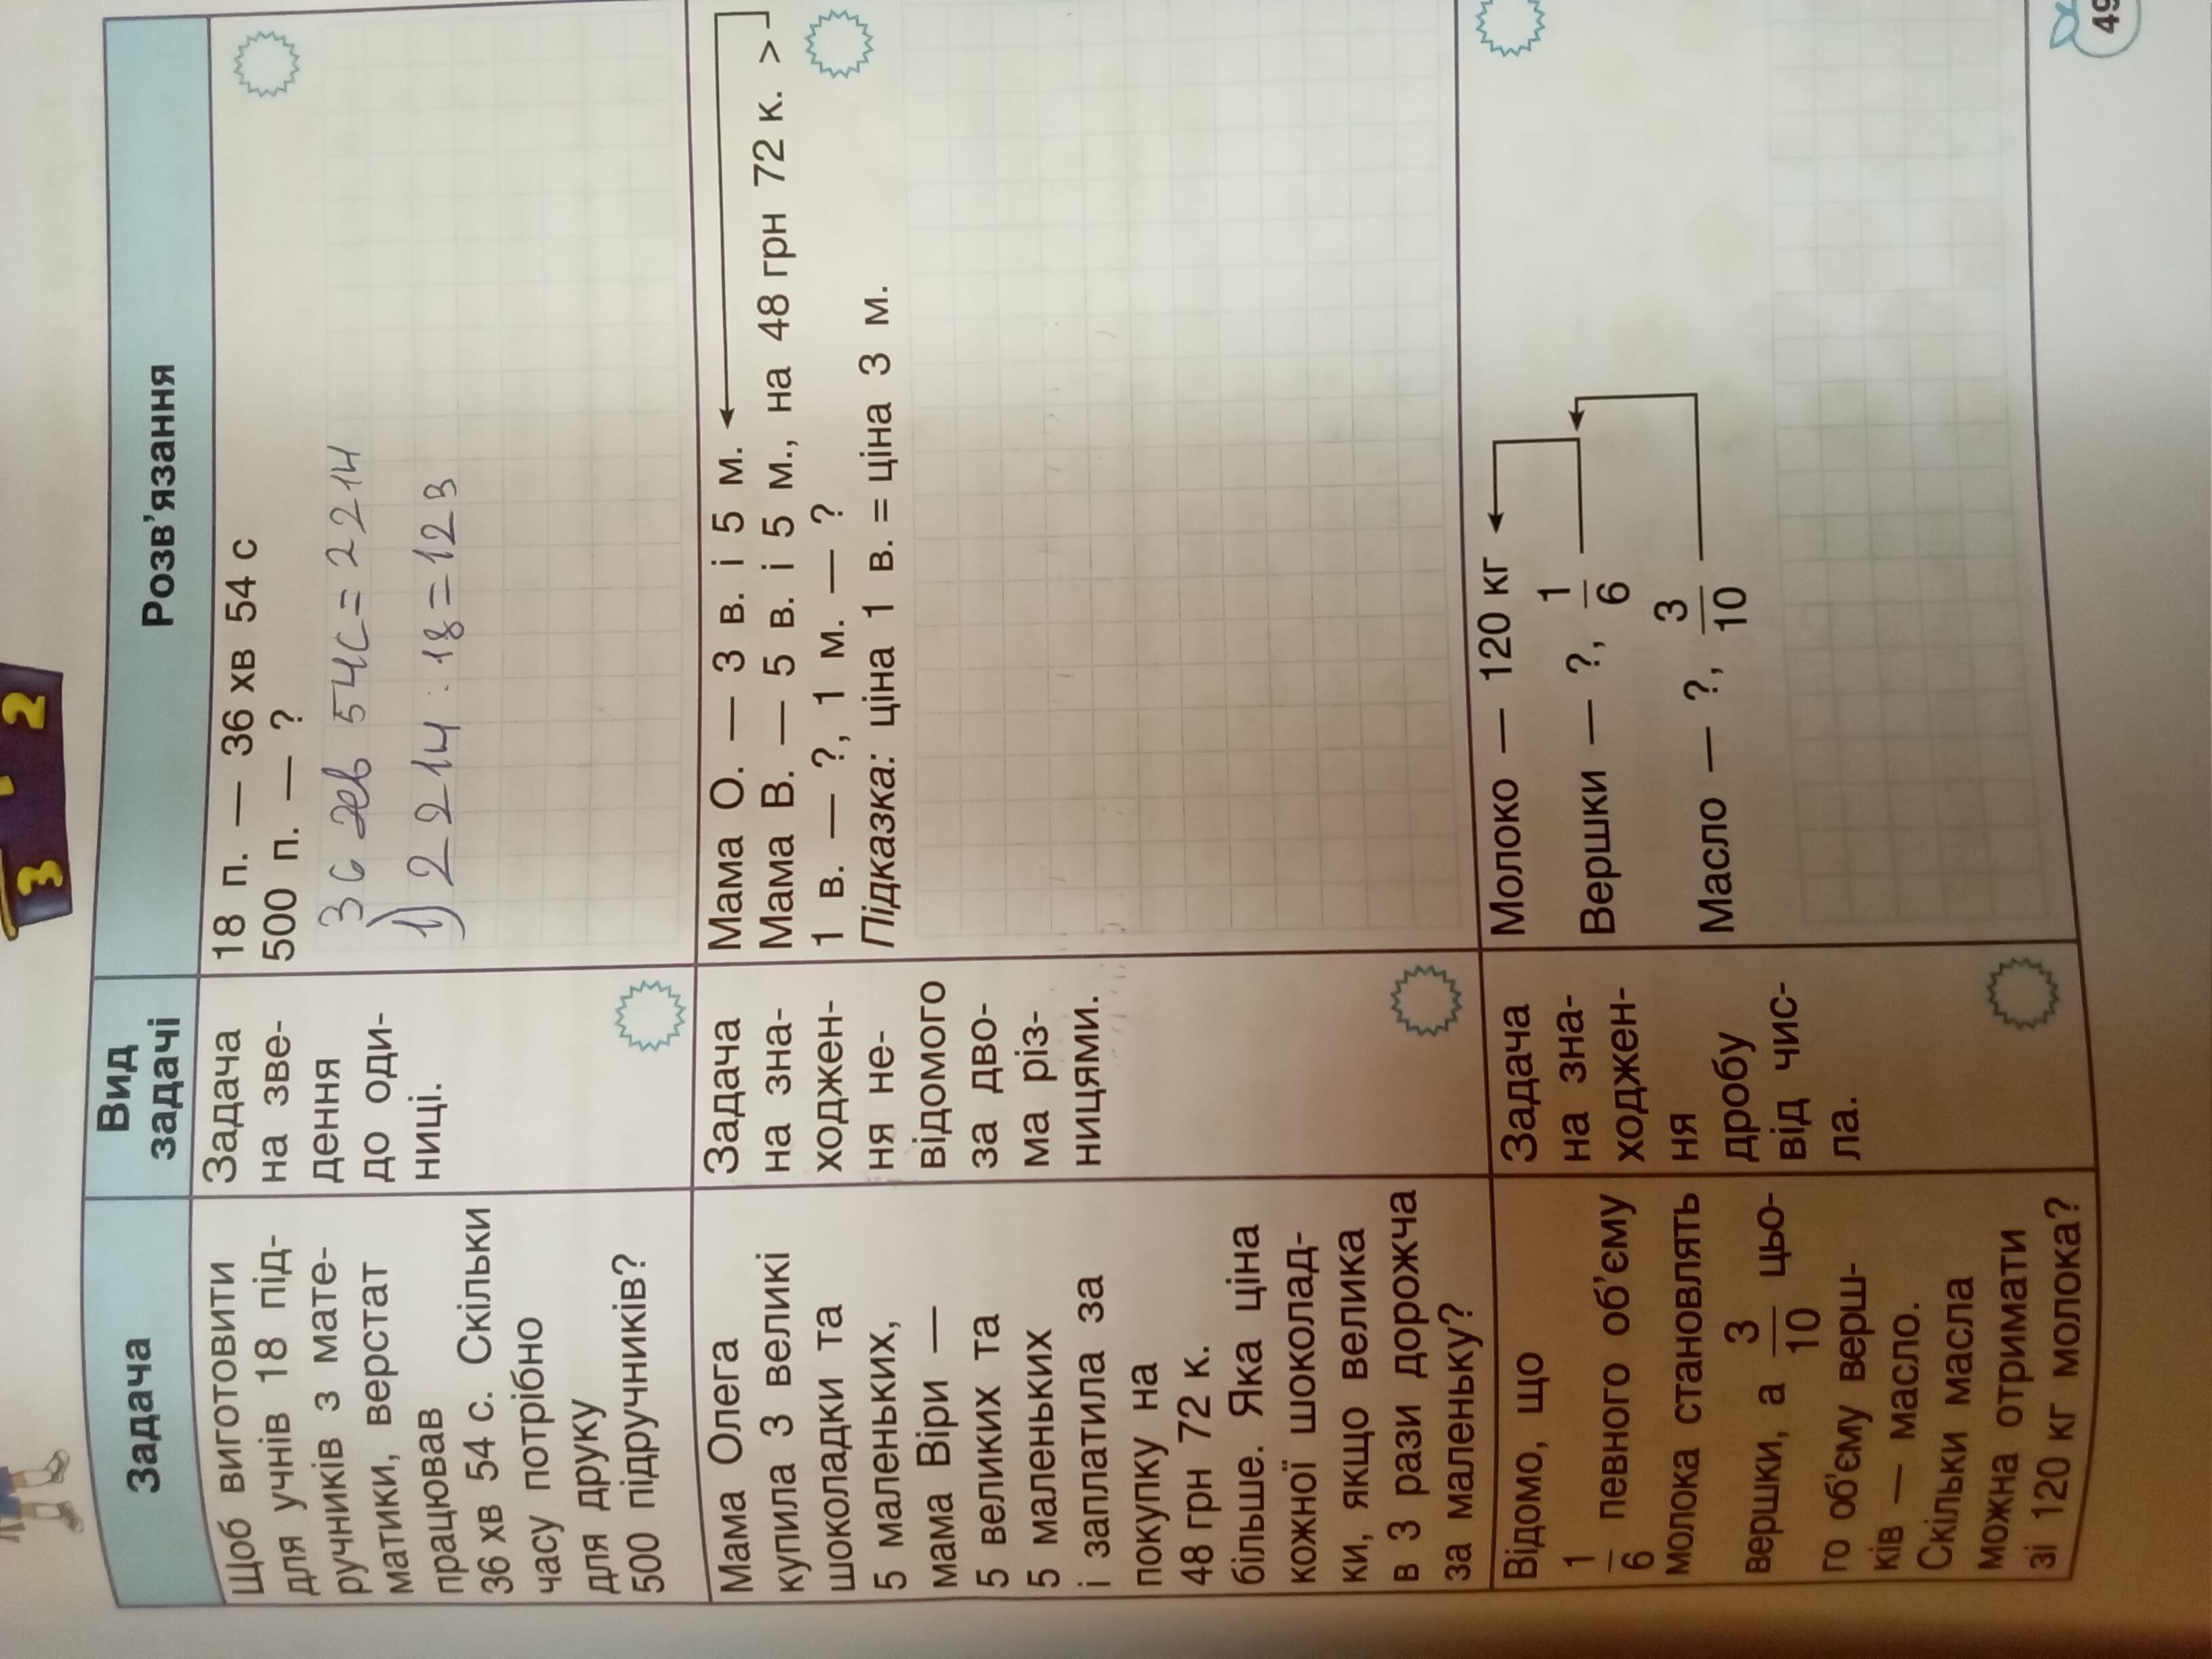 3 2
Задача
Вид
задачі
Розв'язання
Щоб виготовити
для учнів 18 під-
ручників з мате-
матики, верстат
працював
36 хв 54 с. Скільки
часу потрібно
для друку
500 підручників?
Задача
на зве-
дення
до оди-
ниці.
18 п. — 36 хв 54 с
500 п. — ?
36 хв 54с = 2214
1) 2214 : 18 = 123
Мама Олега
купила 3 великі
шоколадки та
5 маленьких,
мама Віри —
5 великих та
5 маленьких
і заплатила за
покупку на
48 грн 72 к.
більше. Яка ціна
кожної шоколад-
ки, якщо велика
в 3 рази дорожча
за маленьку?
Задача
на зна-
ходжен-
ня не-
відомого
за дво-
ма різ-
ницями.
Мама О. — 3 в. і 5 м.
Мама В. — 5 в. і 5 м., на 48 грн 72 к. >
1 в. — ?, 1 м. — ?
Підказка: ціна 1 в. = ціна 3 м.
Відомо, що
1/6 певного об'єму
молока становлять
вершки, а 3/10 цьо-
го об'єму верш-
ків — масло.
Скільки масла
можна отримати
зі 120 кг молока?
Задача
на зна-
ходжен-
ня
дробу
від чис-
ла.
Молоко — 120 кг
Вершки — ?, 1/6
Масло — ?, 3/10
49